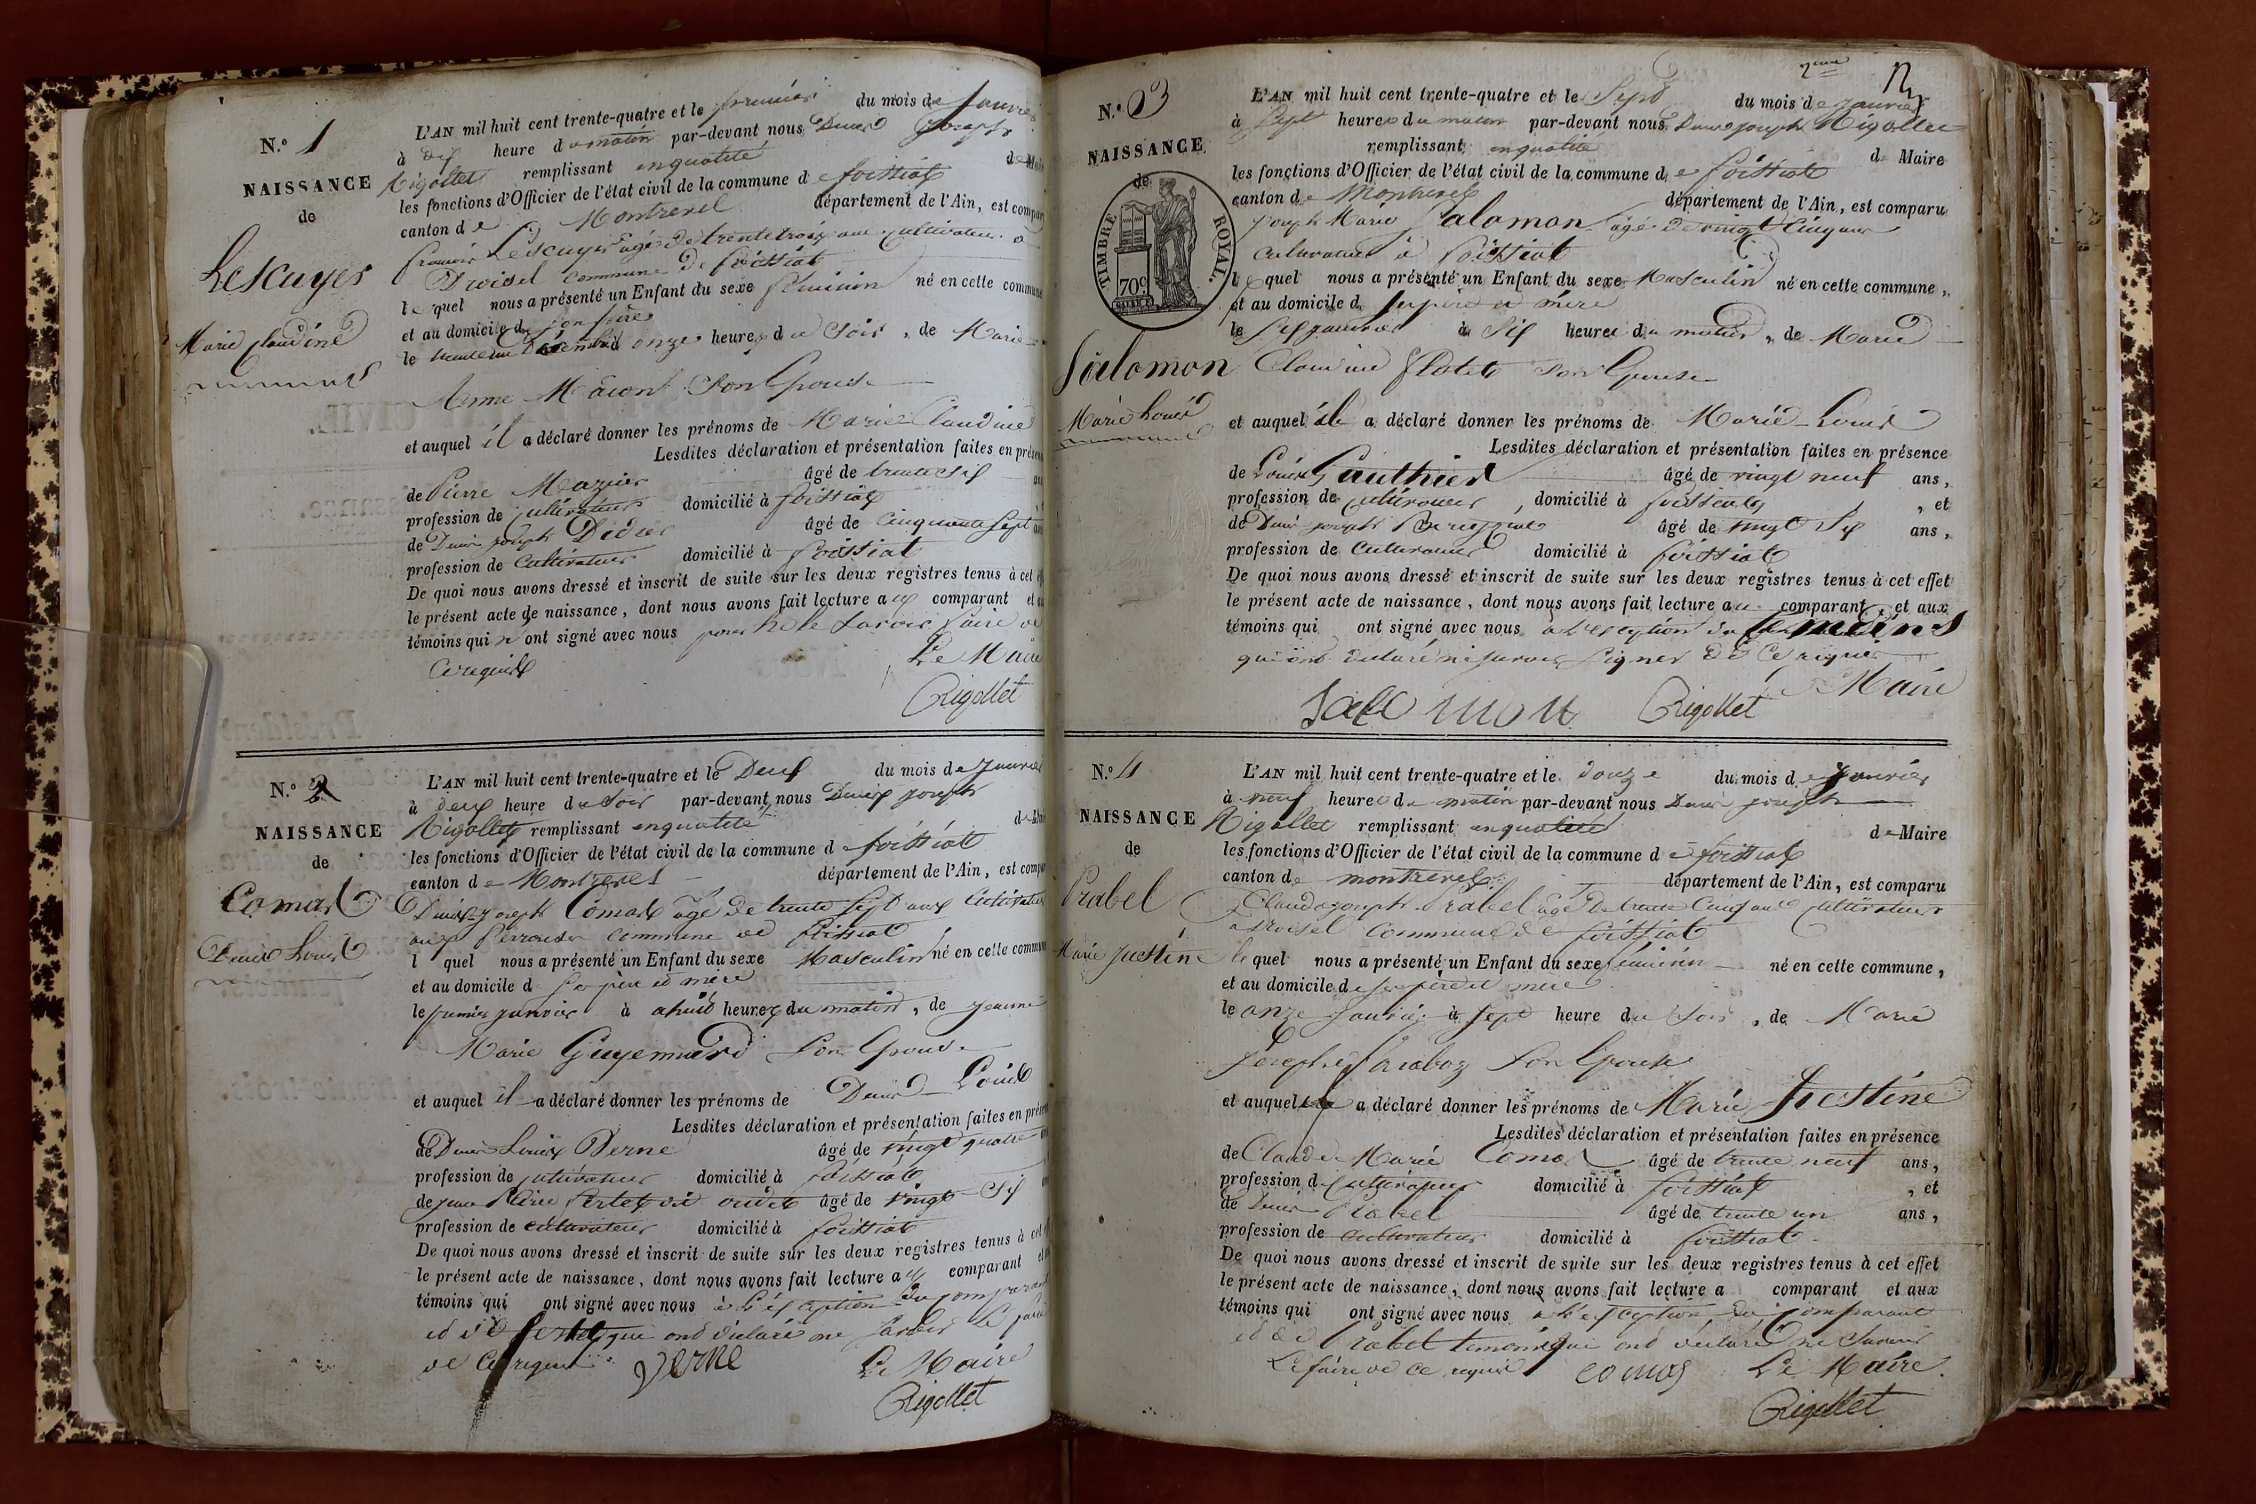 N.° 1
NAISSANCE
de
Lescuyer
Marie Claudine
L'AN mil huit cent trente-quatre et le premier du mois de Janvier
à dix heure du matin par-devant nous Denis Joseph
Rigollet remplissant enqualité de Maire
les fonctions d'Officier de l'état civil de la commune de foissiat
canton de Montrevel département de l'Ain, est compar
françois Lescuyer agé de trente trois ans cultivateur a
commune De foissiat
lequel nous a présenté un Enfant du sexe féminin né en cette commune
et au domicile de son père
le onze heures du Soir, de Marie
Anne Son Epouse
et auquel il a déclaré donner les prénoms de Marie Claudine
Lesdites déclaration et présentation faites en prése
de Pierre Mazuier âgé de trente six
profession de cultivateur domicilié à foissiat
de Denis joseph Didier âgé de Cinquante sept ans
profession de Cultivateur domicilié à foissiat
De quoi nous avons dressé et inscrit de suite sur les deux registres tenus à cet
le présent acte de naissance, dont nous avons fait lecture aux comparant et
témoins qui n'ont signé avec nous pour ne le Savoir faire de
ce requis
Le Maire
Rigollet
N.° 2
NAISSANCE
de
Comas
Denis Louis
L'AN mil huit cent trente-quatre et le Deux du mois de Janvier
à deux heure du Soir par-devant nous Denis joseph
Rigollet remplissant enqualité de Maire
les fonctions d'Officier de l'état civil de la commune de foissiat
canton de Montrevel département de l'Ain, est compar
Denis joseph Comas âgé de trente sept ans Cultivateur
aux commune de foissiat
l quel nous a présenté un Enfant du sexe Masculin né en cette commune
et au domicile de Ses père et mère
le premier janvier à huit heures du matin, de jeanne
Marie Guyennard Son Epouse
et auquel il a déclaré donner les prénoms de Denis Louis
Lesdites déclaration et présentation faites en prése
de Denis Louis Verne âgé de vingt quatre
profession de cultivateur domicilié à foissiat
de jean Marie Pertet dit âgé de vingt Six
profession de cultivateur domicilié à foissiat
De quoi nous avons dressé et inscrit de suite sur les deux registres tenus à cet
le présent acte de naissance, dont nous avons fait lecture au comparant et
témoins qui ont signé avec nous à l'exception du comparant
et de Pertet qui ont déclaré ne Savoir le faire
de Ce requis
verne
Le Maire
Rigollet
2eme
N.° 3
NAISSANCE
de
TIMBRE ROYAL.
70c
Salomon
Marie Louis
L'AN mil huit cent trente-quatre et le Sept du mois de janvier
à Sept heures du matin par-devant nous Denis joseph Rigollet
remplissant enqualité de Maire
les fonctions d'Officier de l'état civil de la commune de foissiat
canton de Montrevel département de l'Ain, est comparu
joseph Marie Salomon agé de vingt Cinq ans
Cultivateur à foissiat
lequel nous a présenté un Enfant du sexe Masculin né en cette commune,
et au domicile de ses père et mère
le Six janvier à Six heures du matin, de Marie
Claudine Son Epouse
et auquel il a déclaré donner les prénoms de Marie Louis
Lesdites déclaration et présentation faites en présence
de Louis Gauthier âgé de vingt neuf ans,
profession de cultivateur, domicilié à foissiat, et
de Denis joseph âgé de vingt Six ans,
profession de Cultivateur domicilié à foissiat
De quoi nous avons dressé et inscrit de suite sur les deux registres tenus à cet effet
le présent acte de naissance, dont nous avons fait lecture au comparant, et aux
témoins qui ont signé avec nous à l'exception des temoins
qui ont declaré ne savoir Signer De Ce requis
Le Maire
Sallomon
Rigollet
N.° 4
NAISSANCE
de
Prabel
Marie justine
L'AN mil huit cent trente-quatre et le douze du mois de Janvier
à neuf heures du matin par-devant nous Denis joseph
Rigollet remplissant enqualité de Maire
les fonctions d'Officier de l'état civil de la commune de foissiat
canton de montrevel département de l'Ain, est comparu
Claude joseph Prabel agé De trente Cinq ans cultivateur
commune de foissiat
lequel nous a présenté un Enfant du sexe féminin né en cette commune,
et au domicile de ses père et mère
le onze janvier à Sept heure du Soir, de Marie
Son Epouse
et auquel il a déclaré donner les prénoms de Marie justine
Lesdites déclaration et présentation faites en présence
de Claude Marie Comas âgé de trente neuf ans,
profession de Cultivateur domicilié à foissiat, et
de Denis Prabel âgé de trente un ans,
profession de cultivateur domicilié à foissiat
De quoi nous avons dressé et inscrit de suite sur les deux registres tenus à cet effet
le présent acte de naissance, dont nous avons fait lecture a comparant et aux
témoins qui ont signé avec nous à l'exception du comparant
et de Prabel temoin que ont declaré ne Savoir
Le faire de ce requis
comas
Le Maire
Rigollet